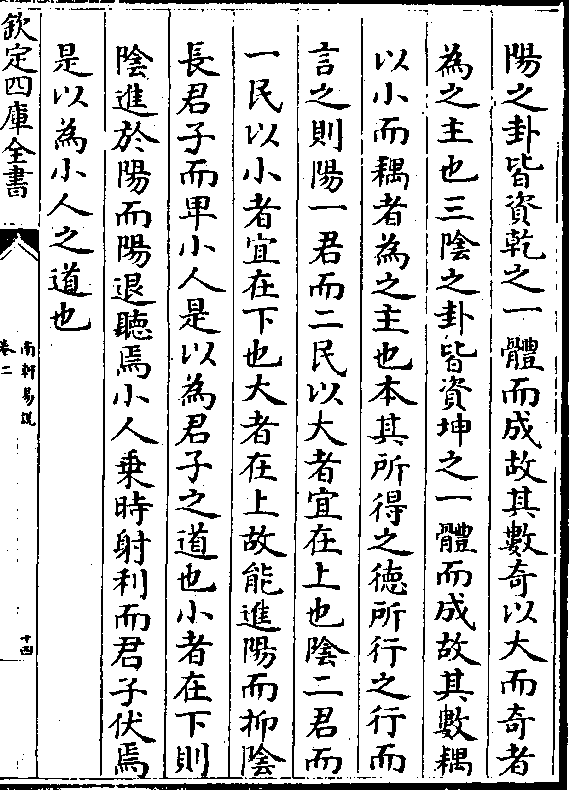 陽之卦皆資乾之一體而成故其數奇以大而奇者
為之主也三陰之卦皆資坤之一體而成故其數耦
以小而耦者為之主也本其所得之德所行之行而
言之則陽一君而二民以大者宜在上也陰二君而
一民以小者宜在下也大者在上故能進陽而抑陰
長君子而卑小人是以為君子之道也小者在下則
陰進於陽而陽退聽焉小人乗時射利而君子伏焉
是以為小人之道也
欽定四庫全書
南軒易說
卷二
十四